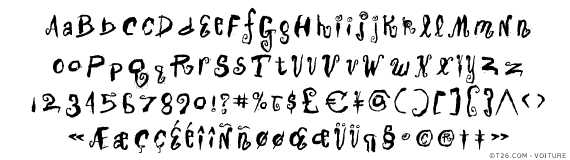 AaBbCcDdEeFfGgHhIiJjKkLlMmNn
OoPpQqRrSsTtUuVvWwXxYyZz
1234567890!?#%$£€¥@()[]{}/\<>
«ÆæÇçÉéÎîÑñØøŒœÜü¶§°©®†‡»
©T26.COM - VOITURE